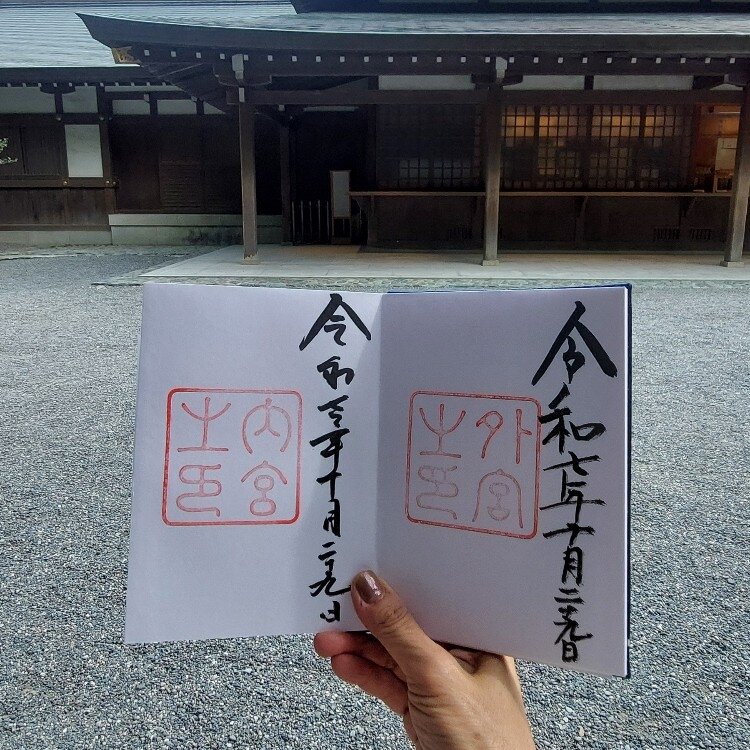 令和七年十月二十九日
外宮
之印
令和七年十月二十九日
内宮
之印